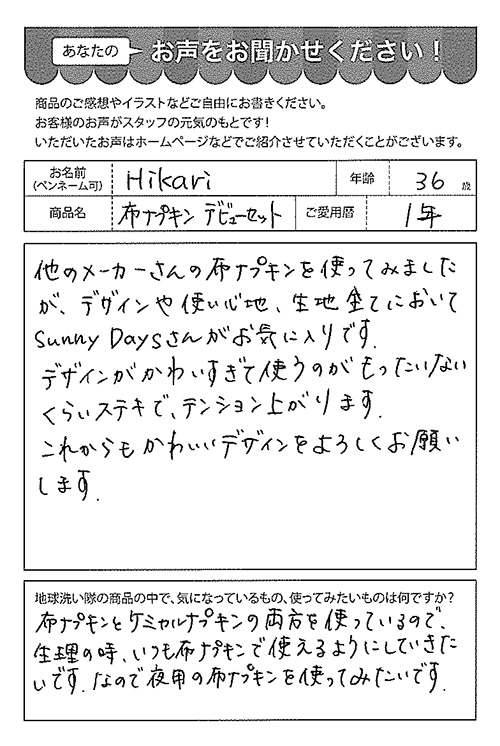 あなたの お声をお聞かせください！
商品のご感想やイラストなどご自由にお書きください。
お客様のお声がスタッフの元気のもとです！
いただいたお声はホームページなどでご紹介させていただくことがございます。
お名前 (ペンネーム可) Hikari 年齢 36 歳
商品名 布ナプキン デビューセット ご愛用暦 1年
他のメーカーさんの布ナプキンを使ってみました
が、デザインや使い心地、生地全てにおいて
Sunny Daysさんがお気に入りです.
デザインがかわいすぎて使うのがもったいない
くらいステキで、テンション上がります.
これからもかわいいデザインをよろしくお願い
します.
地球洗い隊の商品の中で、気になっているもの、使ってみたいものは何ですか？
布ナプキンとケミカルナプキンの両方を使っているので、
生理の時、いつも布ナプキンで使えるようにしていきた
いです. なので夜用の布ナプキンを使ってみたいです.